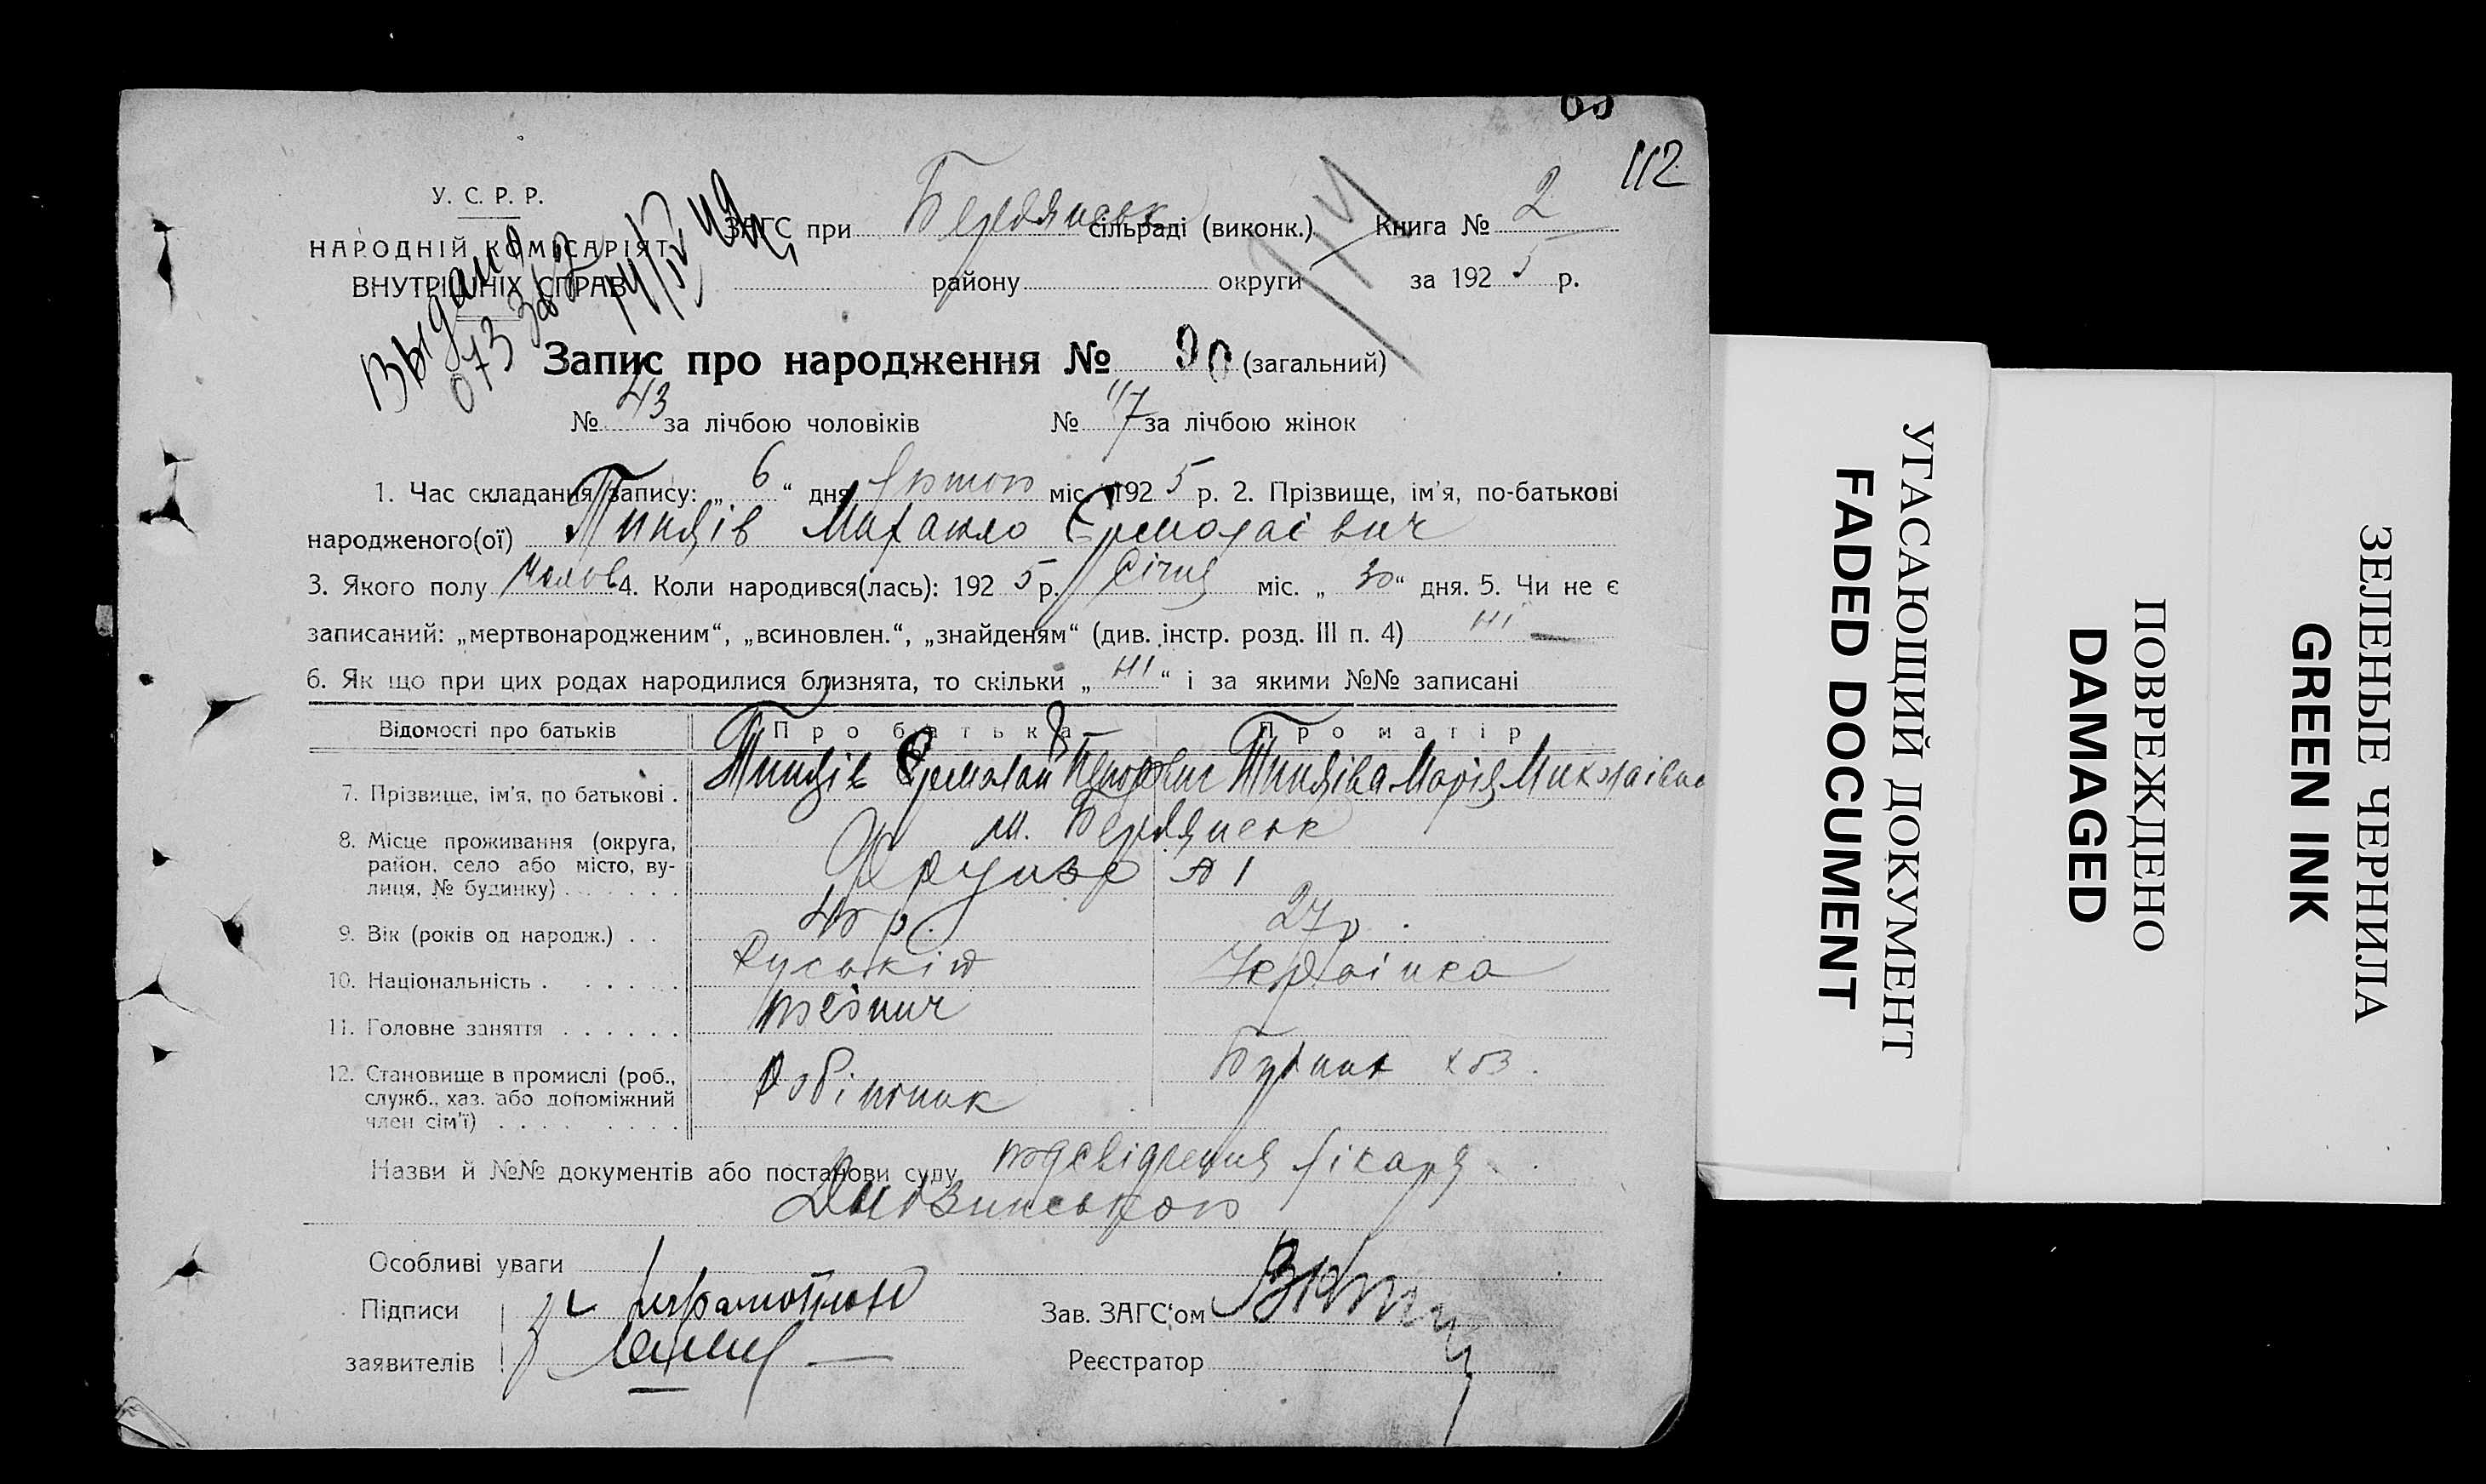 112
У. С. Р. Р.
НАРОДНІЙ КОМІСАРІЯТ
ВНУТРІШНІХ СПРАВ
ЗАГС при Бердянськ сільраді (виконк.) Книга № 2
району округи за 1925 р.
Выдано
Запис про народження № 90 (загальний)
№ 43 за лічбою чоловіків № 47 за лічбою жінок
1. Час складання запису: „ 6 “ дня Лютого міс. 1925 р. 2. Прізвище, ім’я, по-батькові
народженого(ої) Тиндів Михайло Єрмолаєвич
3. Якого полу Чолов 4. Коли народився(лась): 1925 р. Січня міс. „ 30 “ дня. 5. Чи не є
записаний: „мертвонародженим“, „всиновлен.“, „знайденям“ (див. інстр. розд. III п. 4) ні —
6. Як що при цих родах народилися близнята, то скільки „ ні “ і за якими №№ записані
Відомості про батьків Про батька Про матір
7. Прізвище, ім’я, по батькові . Тиндів Єрмолай Тиндіва Марія Миколаївна
8. Місце проживання (округа, м. Бердянськ
район, село або місто, ву-
лиця, № будинку) . . . . . . Фрунзе № 1
9. Вік (років од народж.) . . 27 р.
10. Національність . . . . . . Руський Українка
11. Головне заняття . . . . . .
12. Становище в промислі (роб., служб., хаз. або допоміжний член сім’ї) . . . . . . . . Робітник
Назви й №№ документів або постанови суду посвідчення лікаря
Особливі уваги
Підписи неграмотного Зав. ЗАГС‘ом
заявителів Реєстратор
УГАСАЮЩИЙ ДОКУМЕНТ
FADED DOCUMENT
ПОВРЕЖДЕНО
DAMAGED
ЗЕЛЕНЫЕ ЧЕРНИЛА
GREEN INK